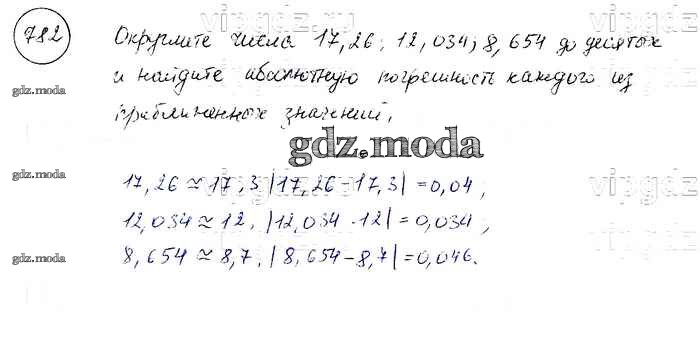 782
Округлите числа 17,26; 12,034; 8,654 до десятых
и найдите абсолютную погрешность каждого из
приближенных значений.
gdz.moda
gdz.moda
17,26 ≈ 17,3 |17,26 - 17,3| = 0,04;
12,034 ≈ 12, |12,034 - 12| = 0,034;
8,654 ≈ 8,7, |8,654 - 8,7| = 0,046.
gdz.moda
gdz.moda
vipgdz
vipgdz
vipgdz
vipgdz